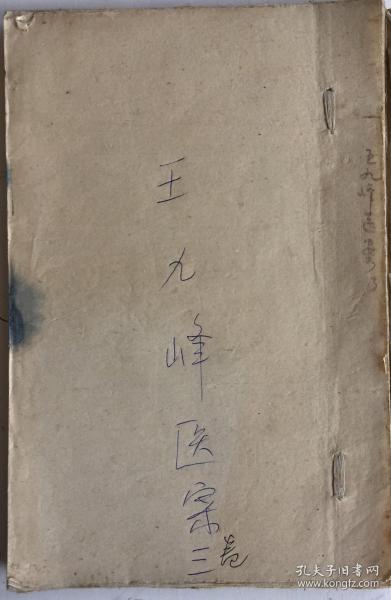 王九峰医案三卷
王九峰医案
孔夫子旧书网
www.kongfz.com